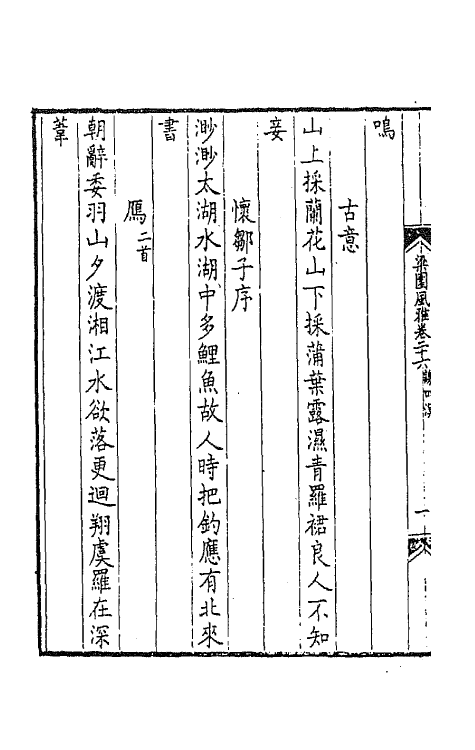 梁園風雅卷二十六
一
鳴
古意
山上採蘭花山下採蒲葉露濕青羅裙良人不知
妾
懷鄒子序
渺渺太湖水湖中多鯉魚故人時把釣應有北來
書
鴈二首
朝辭委羽山夕渡湘江水欲落更迴翔虞羅在深
葦